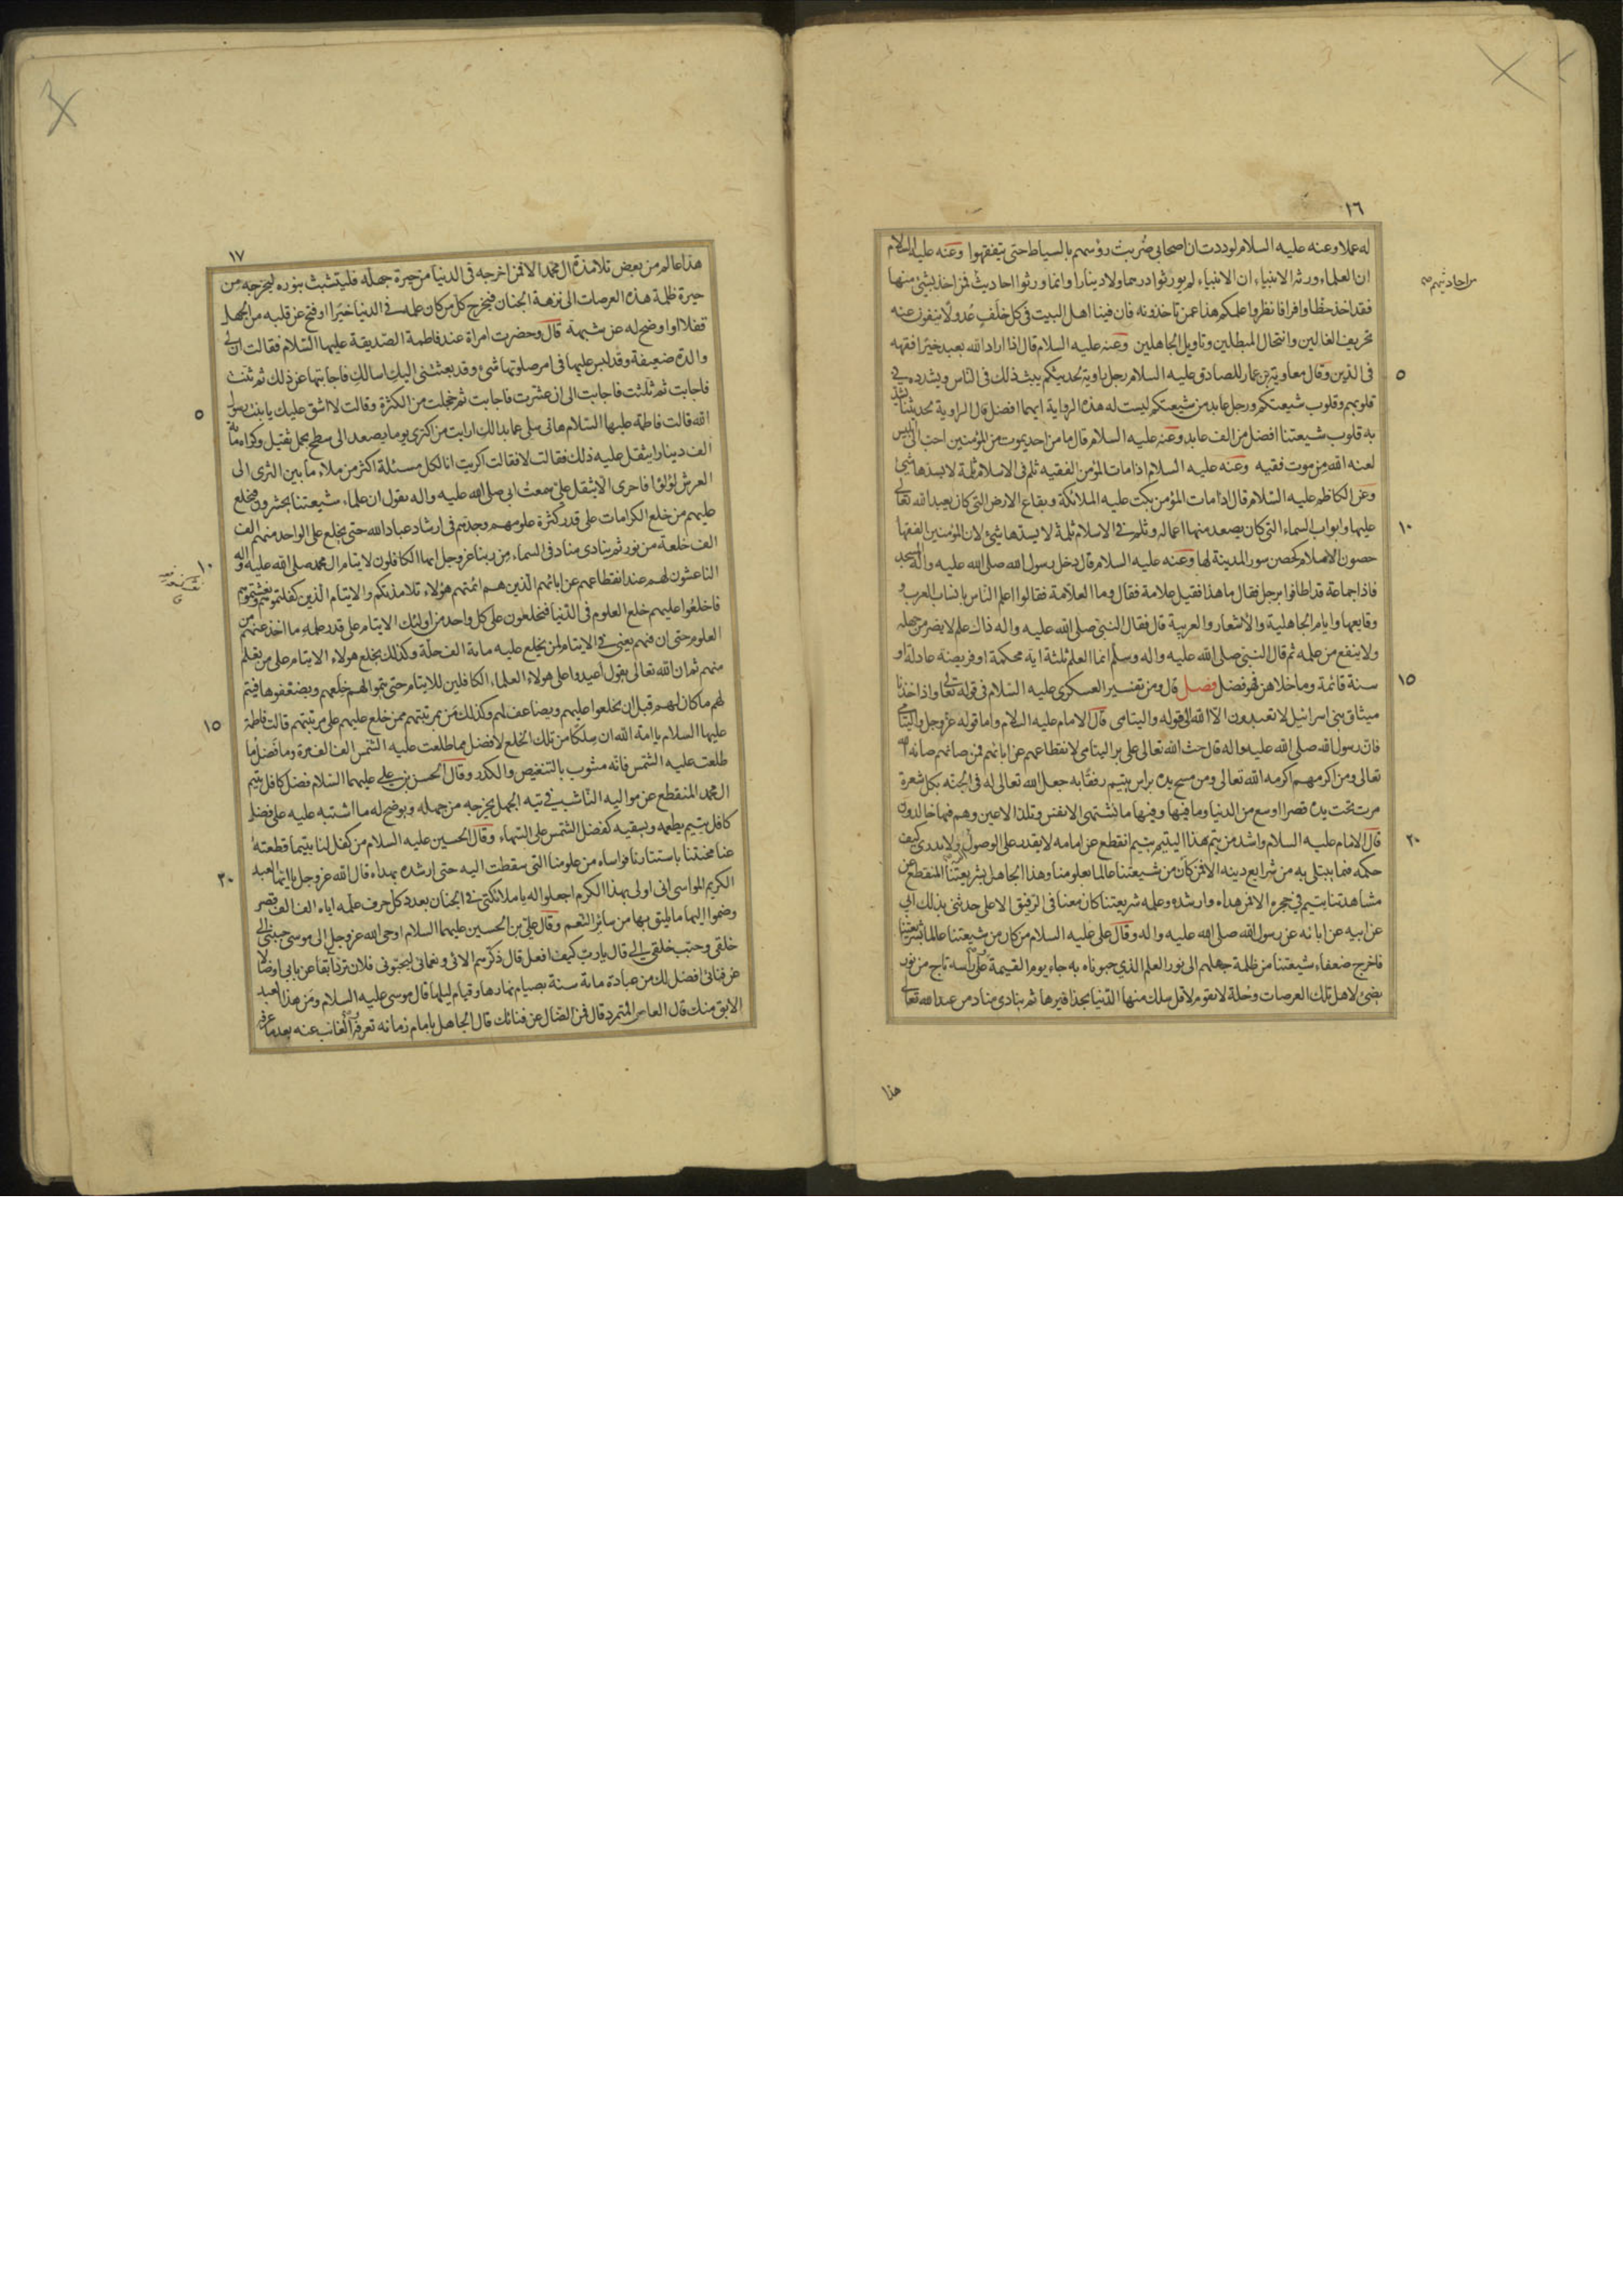 ١٦
له عملا وعنه عليه السلام لوددت ان اصحابي ضُربت رؤسهم بالسياط حتى يتفقهوا وعنه عليه السلام
ان العلماء ورثة الانبياء ان الانبياء لم يورثوا درهما ولا دينارا وانما ورثوا احاديث فمن اخذ بشئ منها
من احاديثهم صح
فقد اخذ حظا وافرا فانظروا علمكم هذا عمن تاخذونه فان فينا اهل البيت في كل خلف عدولا ينفون عنه
تحريف الغالين وانتحال المبطلين وتاويل الجاهلين وعنه عليه السلام قال اذا اراد الله بعبد خيرا فقهه
في الدين وقال معاوية بن عمار للصادق عليه السلام رجل راوية لحديثكم يبث ذلك في الناس ويشدده في
٥
قلوبهم وقلوب شيعتكم ورجل عابد من شيعتكم ليست له هذه الرواية ايهما افضل قال الراوية لحديثنا يشد
به قلوب شيعتنا افضل من الف عابد وعنه عليه السلام قال ما من احد يموت من المؤمنين احب الى ابليس
لعنه الله من موت فقيه وعنه عليه السلام اذا مات المؤمن الفقيه ثلم في الاسلام ثلمة لا يسدها شئ
وعن الكاظم عليه السلام قال اذا مات المؤمن بكت عليه الملائكة وبقاع الارض التي كان يعبد الله تعالى
عليها وابواب السماء التي كان يصعد منها اعماله وثلم في الاسلام ثلمة لا يسدها شئ لان المؤمنين الفقهاء
١٠
حصون الاسلام كحصن سور المدينة لها وعنه عليه السلام قال دخل رسول الله صلى الله عليه واله المسجد
فاذا جماعة قد اطافوا برجل فقال ما هذا فقيل علامة فقال وما العلامة فقالوا اعلم الناس بانساب العرب و
وقايعها وايام الجاهلية والاشعار والعربية قال فقال النبي صلى الله عليه واله ذاك علم لا يضر من جهله
ولا ينفع من علمه ثم قال النبي صلى الله عليه واله وسلم انما العلم ثلثة اية محكمة او فريضة عادلة او
سنة قائمة وما خلاهن فهو فضل فصل قال ومن تفسير العسكري عليه السلام في قوله تعالى واذ اخذنا
١٥
ميثاق بني اسرائيل لا تعبدون الا الله الى قوله واليتامى قال الامام عليه السلام واما قوله عز وجل واليتامى
فان رسول الله صلى الله عليه واله قال حث الله تعالى على بر اليتامى لانقطاعهم عن ابائهم فمن صانهم صانه الله
تعالى ومن اكرمهم اكرمه الله تعالى ومن مسح يده براس يتيم رفقا به جعل الله تعالى له في الجنة بكل شعرة
مرت تحت يده قصرا اوسع من الدنيا وما فيها وفيها ما تشتهى الانفس وتلذ الاعين وهم فيها خالدون
قال الامام عليه السلام واشد من يتم هذا اليتيم يتيم انقطع عن امامه لا يقدر على الوصول ولا يدرى كيف
٢٠
حكمه فيما يبتلى به من شرايع دينه الا فمن كان من شيعتنا عالما بعلومنا وهذا الجاهل بشريعتنا المنقطع عن
مشاهدتنا يتيم في حجره الا فمن هداه وارشده وعلمه شريعتنا كان معنا في الرفيق الاعلى حدثني بذلك ابي
عن ابيه عن ابائه عن رسول الله صلى الله عليه واله وقال على عليه السلام من كان من شيعتنا عالما بشريعتنا
فاخرج ضعفاء شيعتنا من ظلمة جهلهم الى نور العلم الذي حبوناه به جاء يوم القيمة على راسه تاج من نور
يضئ لاهل تلك العرصات وحلة لا تقوم لاقل سلك منها الدنيا بحذافيرها ثم ينادى مناد من عند الله تعالى
هذا
١٧
هذا عالم من بعض تلامذة ال محمد الا فمن اخرجه في الدنيا من حيرة جهله فليتشبث بنوره ليخرجه من
حيرة ظلمة هذه العرصات الى نزهة الجنان فيخرج كل من كان علمه في الدنيا خيرا او فتح عن قلبه من الجهل
قفلا او اوضح له عن شبهة قال وحضرت امراة عند فاطمة الصديقة عليها السلام فقالت ان لي
والدة ضعيفة وقد لبس عليها في امر صلوتها شئ وقد بعثتني اليك اسالك فاجابتها عن ذلك ثم ثنت
فاجابت ثم ثلثت فاجابت الى ان عشرت فاجابت ثم خجلت من الكثرة وقالت لا اشق عليك يا بنت رسول
٥
الله قالت فاطمة عليها السلام هاتي سلي عما بدالك ارايت من اكترى يوما يصعد الى سطح بحمل ثقيل وكراه مائة
الف دينار ايثقل عليه ذلك فقالت لا فقالت اكريت انا لكل مسئلة اكثر من ملاء ما بين الثرى الى
العرش لؤلؤا فاحرى الا يثقل على سمعت ابي صلى الله عليه واله يقول ان علماء شيعتنا يحشرون فيخلع
عليهم من خلع الكرامات على قدر كثرة علومهم وجدهم في ارشاد عباد الله حتى يخلع على الواحد منهم الف
الف خلعة من نور ثم ينادى مناد في السماء من ربنا عز وجل ايها الكافلون لايتام ال محمد صلى الله عليه واله
١٠
الناعشون لهم عند انقطاعهم عن ابائهم الذين هم ائمتهم هؤلاء تلامذتكم والايتام الذين كفلتموهم ونعشتموهم
فاخلعوا عليهم خلع العلوم في الدنيا فيخلعون على كل واحد من اولئك الايتام على قدر علمه ما اخذ عنهم من
العلوم حتى ان فيهم يعني في الايتام لمن يخلع عليه ماية الف حلة وكذلك يخلع هولاء الايتام على من تعلم
منهم ثم ان الله تعالى يقول اعيدوا على هولاء العلماء الكافلين للايتام حتى تتموا لهم خلعهم ويضعفوها فيتم
لهم ما كان لهم قبل ان يخلعوا عليهم ويضاعف لهم وكذلك من بمرتبتهم ممن خلع عليهم على مرتبتهم قالت فاطمة
١٥
عليها السلام يا امة الله ان سلكا من تلك الخلع لافضل مما طلعت عليه الشمس الف الف مرة وما فضل ما
طلعت عليه الشمس فانه مشوب بالتنغيص والكدر وقال الحسن بن علي عليهما السلام فضل كافل يتيم
ال محمد المنقطع عن مواليه الناشب في تيه الجهل يخرجه من جهله ويوضح له ما اشتبه عليه على فضل
كافل يتيم يطعمه ويسقيه كفضل الشمس على السهاء وقال الحسين عليه السلام من كفل لنا يتيما قطعته
عنا محنتنا باستتارنا فواساه من علومنا التي سقطت اليه حتى ارشده بهداه قال الله عز وجل يا ايها العبد
٢٠
الكريم المواسى اني اولى بهذا الكرم اجعلوا له يا ملائكتي في الجنان بعدد كل حرف علمه اياه الف الف قصر
وضموا اليها ما يليق بها من سائر النعم وقال علي بن الحسين عليهما السلام اوحى الله عز وجل الى موسى حببني الى
خلقي وحبب خلقي الي قال يا رب كيف افعل قال ذكرهم الائى ونعمائى ليحبوني فلان ترد آبقا عن بابي او ضالا
عن فنائي افضل لك من عبادة مائة سنة بصيام نهارها وقيام ليلها قال موسى عليه السلام ومن هذا العبد
الابق منك قال العاصي المتمرد قال فمن الضال عن فنائك قال الجاهل بامام زمانه تعرفه الغائب عنه بعد ما عرفه